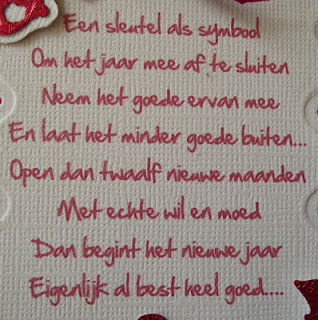 Een sleutel als symbool
Om het jaar mee af te sluiten
Neem het goede ervan mee
En laat het minder goede buiten...
Open dan twaalf nieuwe maanden
Met echte wil en moed
Dan begint het nieuwe jaar
Eigenlijk al best heel goed....